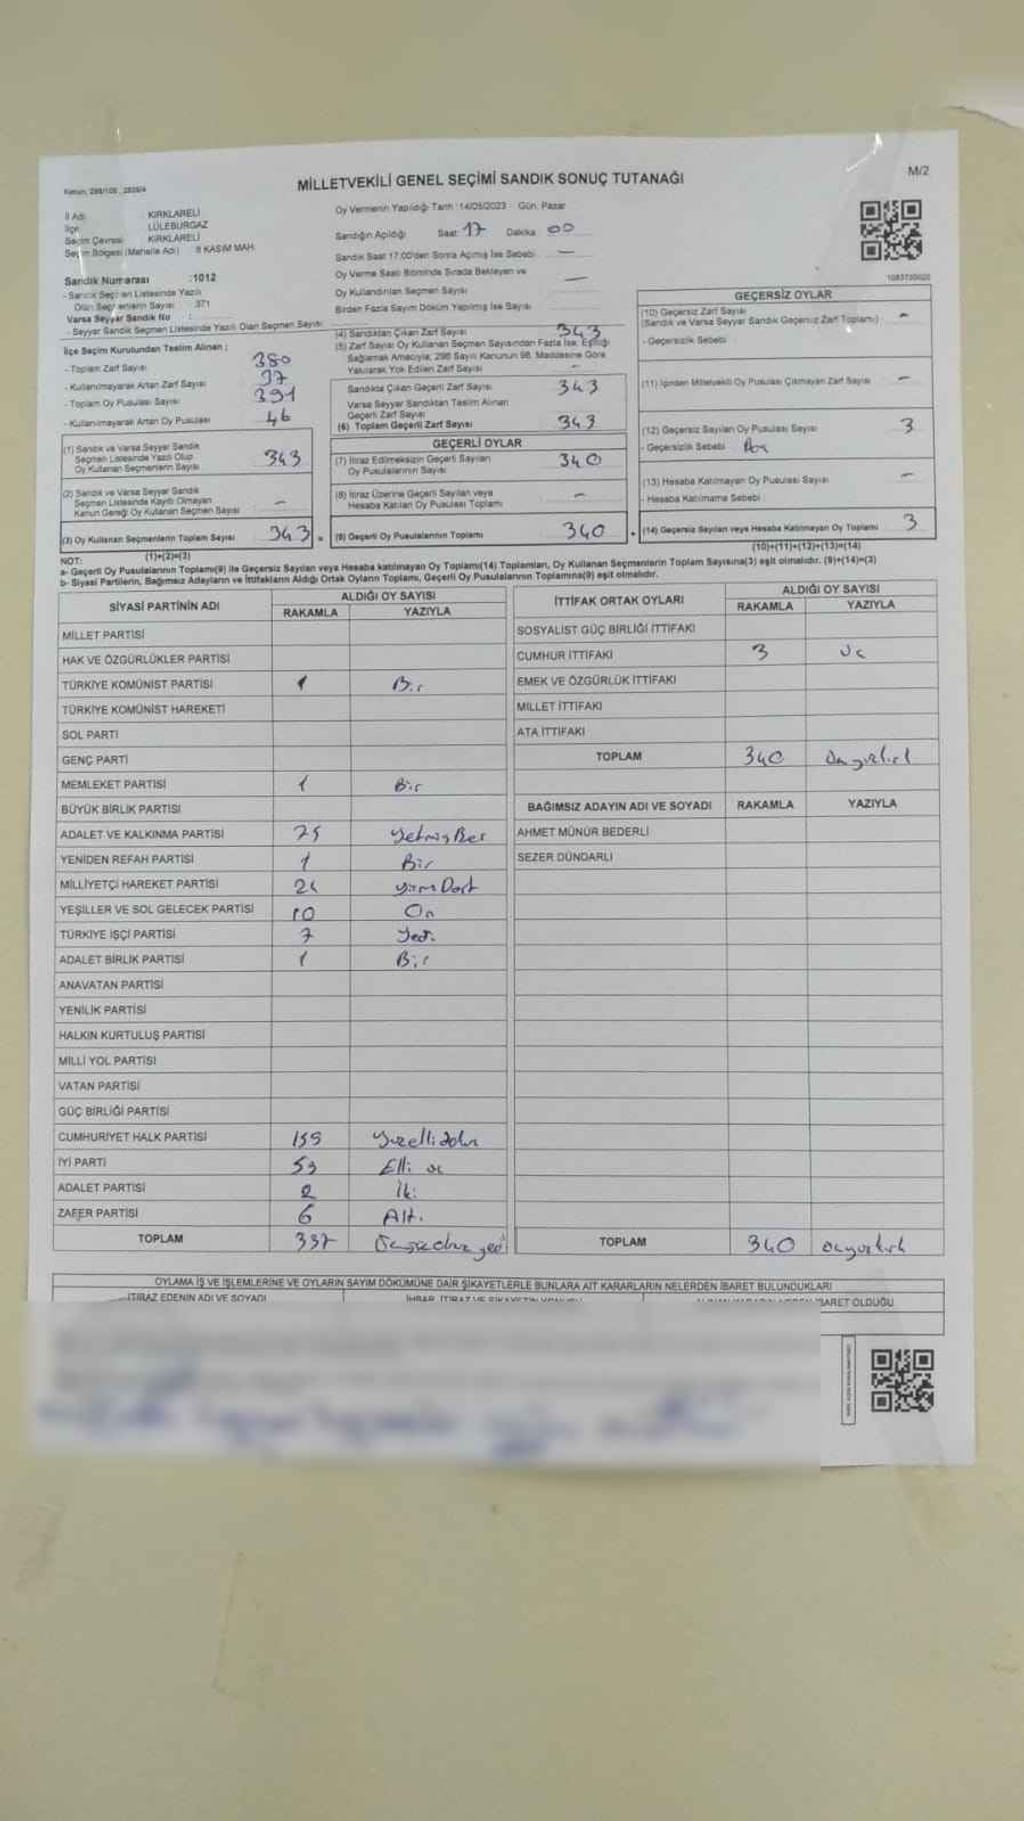 MİLLETVEKİLİ GENEL SEÇİMİ SANDIK SONUÇ TUTANAĞI
M/2
İl Adı : KIRKLARELİ
İlçe : LÜLEBURGAZ
Seçim Çevresi : KIRKLARELİ
Seçim Bölgesi (Mahalle Adı) 8 KASIM MAH.
Sandık Numarası :1012
- Sandık Seçmen Listesinde Yazılı
Olan Seçmenlerin Sayısı 371
Varsa Seyyar Sandık No :
- Seyyar Sandık Seçmen Listesinde Yazılı Olan Seçmen Sayısı
Oy Vermenin Yapıldığı Tarih :14/05/2023 - Gün: Pazar
Sandığın Açıldığı Saat 17 Dakika 00
Sandık Saat 17.00'den Sonra Açılmış İse Sebebi —
Oy Verme Saati Bitiminde Sırada Bekleyen ve
Oy Kullandırılan Seçmen Sayısı —
Birden Fazla Sayım Döküm Yapılmış İse Sayısı
İlçe Seçim Kurulundan Teslim Alınan ;
- Toplam Zarf Sayısı 380
- Kullanılmayarak Artan Zarf Sayısı 37
- Toplam Oy Pusulası Sayısı 391
- Kullanılmayarak Artan Oy Pusulası 46
(1) Sandık ve Varsa Seyyar Sandık
Seçmen Listesinde Yazılı Olup
Oy Kullanan Seçmenlerin Sayısı 343
(2) Sandık ve Varsa Seyyar Sandık
Seçmen Listesinde Kayıtlı Olmayan
Kanun Gereği Oy Kullanan Seçmen Sayısı –
(3) Oy Kullanan Seçmenlerin Toplam Sayısı 343 =
(1)+(2)=(3)
(4) Sandıktan Çıkan Zarf Sayısı 343
(5) Zarf Sayısı Oy Kullanan Seçmen Sayısından Fazla İse, Eşitliği
Sağlamak Amacıyla, 298 Sayılı Kanunun 98. Maddesine Göre
Yakılarak Yok Edilen Zarf Sayısı –
Sandıkta Çıkan Geçerli Zarf Sayısı 343
Varsa Seyyar Sandıktan Teslim Alınan
Geçerli Zarf Sayısı
(6) Toplam Geçerli Zarf Sayısı 343
GEÇERLİ OYLAR
(7) İtiraz Edilmeksizin Geçerli Sayılan
Oy Pusulalarının Sayısı 340
(8) İtiraz Üzerine Geçerli Sayılan veya
Hesaba Katılan Oy Pusulası Toplamı –
(9) Geçerli Oy Pusulalarının Toplamı 340 +
1083735020
GEÇERSİZ OYLAR
(10) Geçersiz Zarf Sayısı
(Sandık ve Varsa Seyyar Sandık Geçersiz Zarf Toplamı) –
- Geçersizlik Sebebi
(11) İçinden Milletvekili Oy Pusulası Çıkmayan Zarf Sayısı –
(12) Geçersiz Sayılan Oy Pusulası Sayısı 3
- Geçersizlik Sebebi
(13) Hesaba Katılmayan Oy Pusulası Sayısı –
- Hesaba Katılmama Sebebi
(14) Geçersiz Sayılan veya Hesaba Katılmayan Oy Toplamı 3
(10)+(11)+(12)+(13)=(14)
NOT:
a- Geçerli Oy Pusulalarının Toplamı(9) ile Geçersiz Sayılan veya Hesaba katılmayan Oy Toplamı(14) Toplamları, Oy Kullanan Seçmenlerin Toplam Sayısına(3) eşit olmalıdır. (9)+(14)=(3)
b- Siyasi Partilerin, Bağımsız Adayların ve İttifakların Aldığı Ortak Oyların Toplamı, Geçerli Oy Pusulalarının Toplamına(9) eşit olmalıdır.
SİYASİ PARTİNİN ADI ALDIĞI OY SAYISI
RAKAMLA YAZIYLA
MİLLET PARTİSİ
HAK VE ÖZGÜRLÜKLER PARTİSİ
TÜRKİYE KOMÜNİST PARTİSİ 1 Bir
TÜRKİYE KOMÜNİST HAREKETİ
SOL PARTİ
GENÇ PARTİ
MEMLEKET PARTİSİ 1 Bir
BÜYÜK BİRLİK PARTİSİ
ADALET VE KALKINMA PARTİSİ 75 Yetmiş Beş
YENİDEN REFAH PARTİSİ 1 Bir
MİLLİYETÇİ HAREKET PARTİSİ 24 yirmi Dört
YEŞİLLER VE SOL GELECEK PARTİSİ 10 On
TÜRKİYE İŞÇİ PARTİSİ 7 Yedi
ADALET BİRLİK PARTİSİ 1 Bir
ANAVATAN PARTİSİ
YENİLİK PARTİSİ
HALKIN KURTULUŞ PARTİSİ
MİLLİ YOL PARTİSİ
VATAN PARTİSİ
GÜÇ BİRLİĞİ PARTİSİ
CUMHURİYET HALK PARTİSİ 159
İYİ PARTİ 53 Elli üç
ADALET PARTİSİ 2 İki
ZAFER PARTİSİ 6 Altı
TOPLAM 337
İTTİFAK ORTAK OYLARI ALDIĞI OY SAYISI
RAKAMLA YAZIYLA
SOSYALİST GÜÇ BİRLİĞİ İTTİFAKI
CUMHUR İTTİFAKI 3 Üç
EMEK VE ÖZGÜRLÜK İTTİFAKI
MİLLET İTTİFAKI
ATA İTTİFAKI
TOPLAM 340
BAĞIMSIZ ADAYIN ADI VE SOYADI RAKAMLA YAZIYLA
AHMET MÜNÜR BEDERLİ
SEZER DÜNDARLI
TOPLAM 340
OYLAMA İŞ VE İŞLEMLERİNE VE OYLARIN SAYIM DÖKÜMÜNE DAİR ŞİKAYETLERLE BUNLARA AİT KARARLARIN NELERDEN İBARET BULUNDUKLARI
İTİRAZ EDENİN ADI VE SOYADI
İBARET OLDUĞU